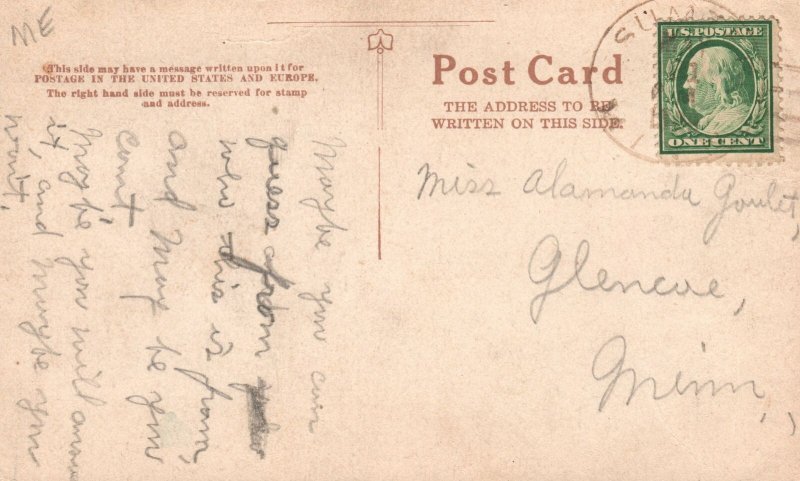 ME
This side may have a message written upon it for
POSTAGE IN THE UNITED STATES AND EUROPE.
The right hand side must be reserved for stamp
and address.
Post Card
THE ADDRESS TO BE
WRITTEN ON THIS SIDE.
U.S. POSTAGE
ONE CENT
Miss Alamanda Goulet,
Glencoe,
Minn,
Maybe you can
guess from
who this is from,
and May be you
cant
Maybe you will answer
it, and maybe you
wont,